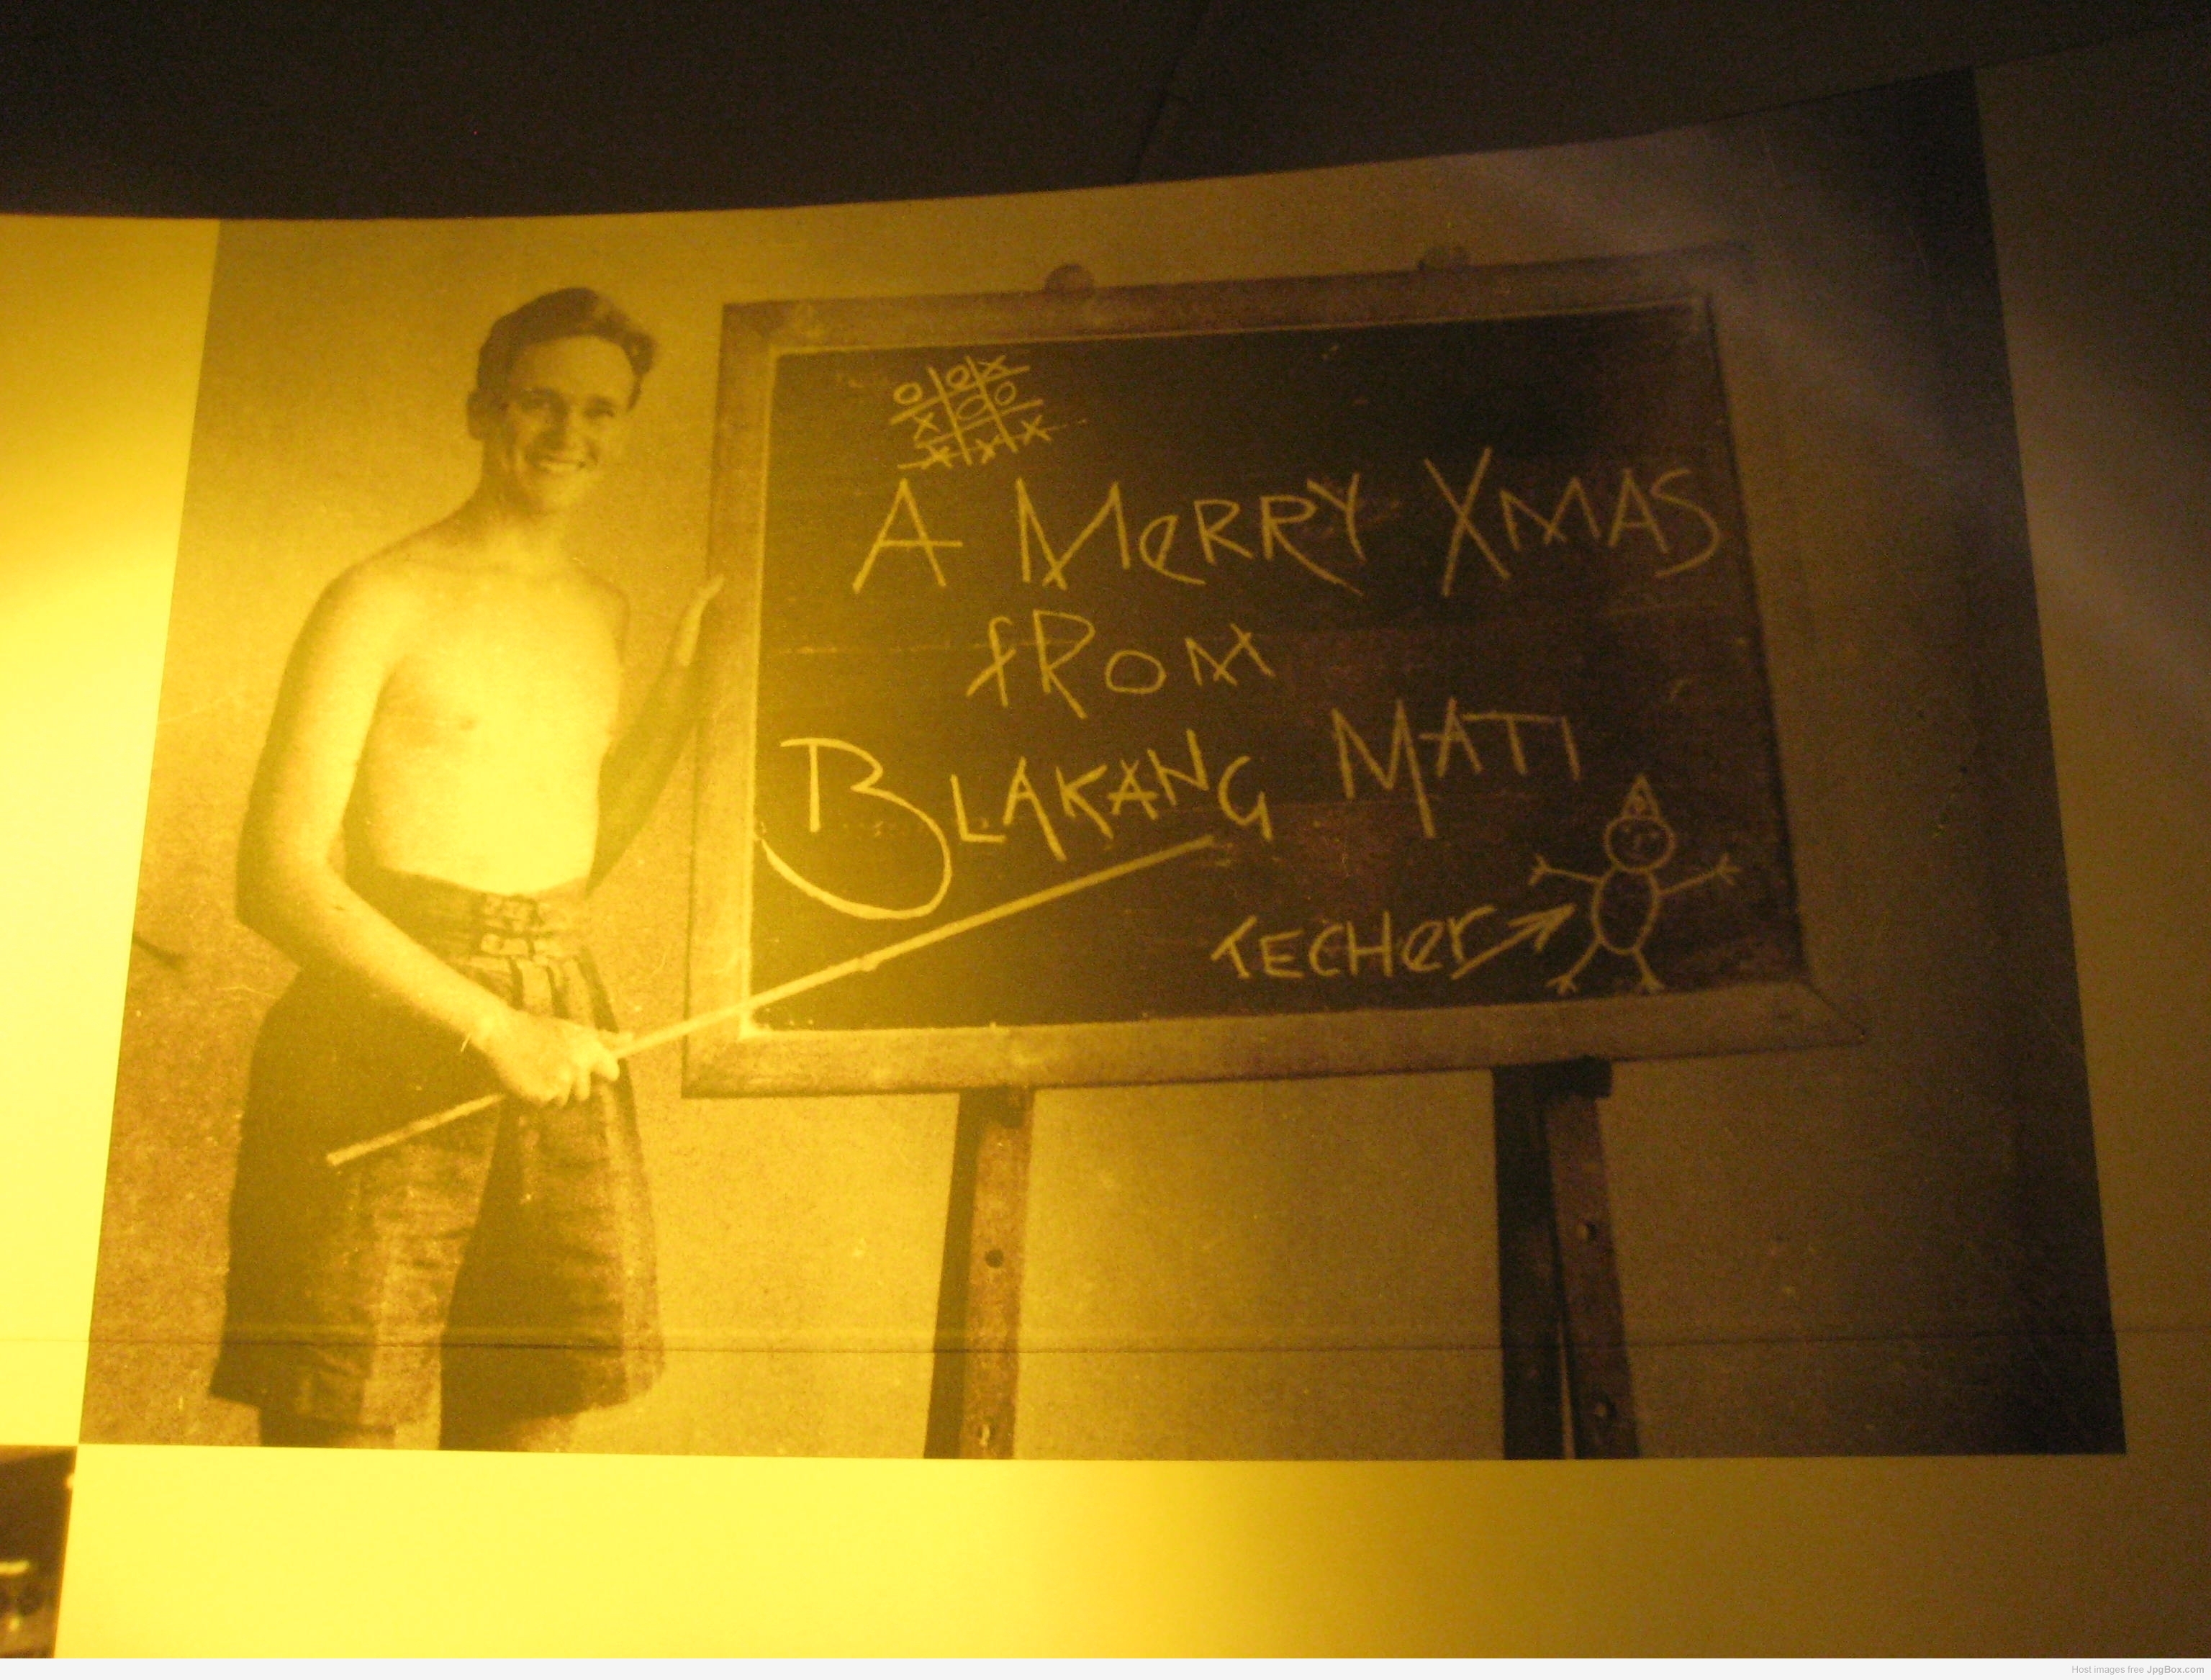 O O X
X O O
X X X
A MeRRY XMAS
fROM
BLAKANG MATI
TECHer
Host images free JpgBox.com